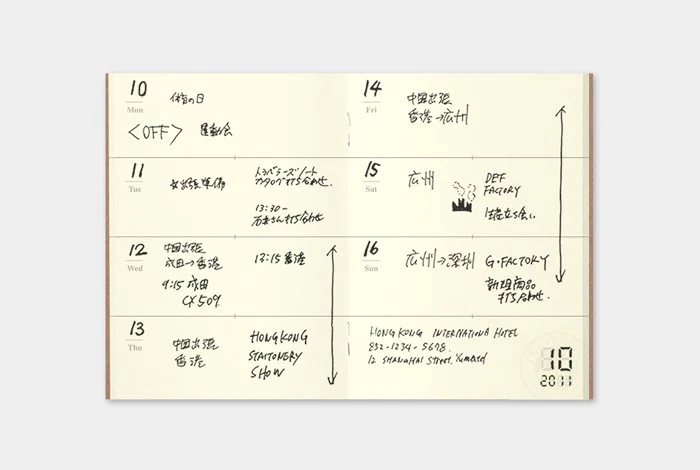 10
Mon
体育の日
<OFF> 運動会
11
Tue
出張準備
トラベラーズノート
カタログ打ち合わせ.
13:30-
打ち合わせ
12
Wed
中国出張
成田→香港
9:15 成田
CX509
13:15 香港
13
Thu
中国出張
香港
HONGKONG
STAITONERY
SHOW
14
Fri
中国出張
香港→広州
15
Sat
広州
DEF
FACTORY
16
Sun
広州→深圳
G・FACTORY
新規商品
打ち合わせ.
HONG KONG INTERNATIONA HOTEL
852-1234-5678.
12 SHANGHAI Street,
10
2011